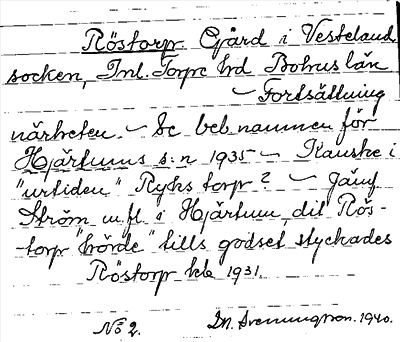 Röstorp Gård i Vesteland
socken, Inl. Torpe hd Bohus län
– Fortsättning
närheten. – Se beb namnen för
Hjärtums s:n 1935 – Kanske i
"urtiden" Ryks torp? – Jämf
Ström m.fl. i Hjärtum, dit Rös-
-torp "hörde" tills godset styckades
Röstorp kb 1931.
No 2. Dn. Svenungson. 1940.